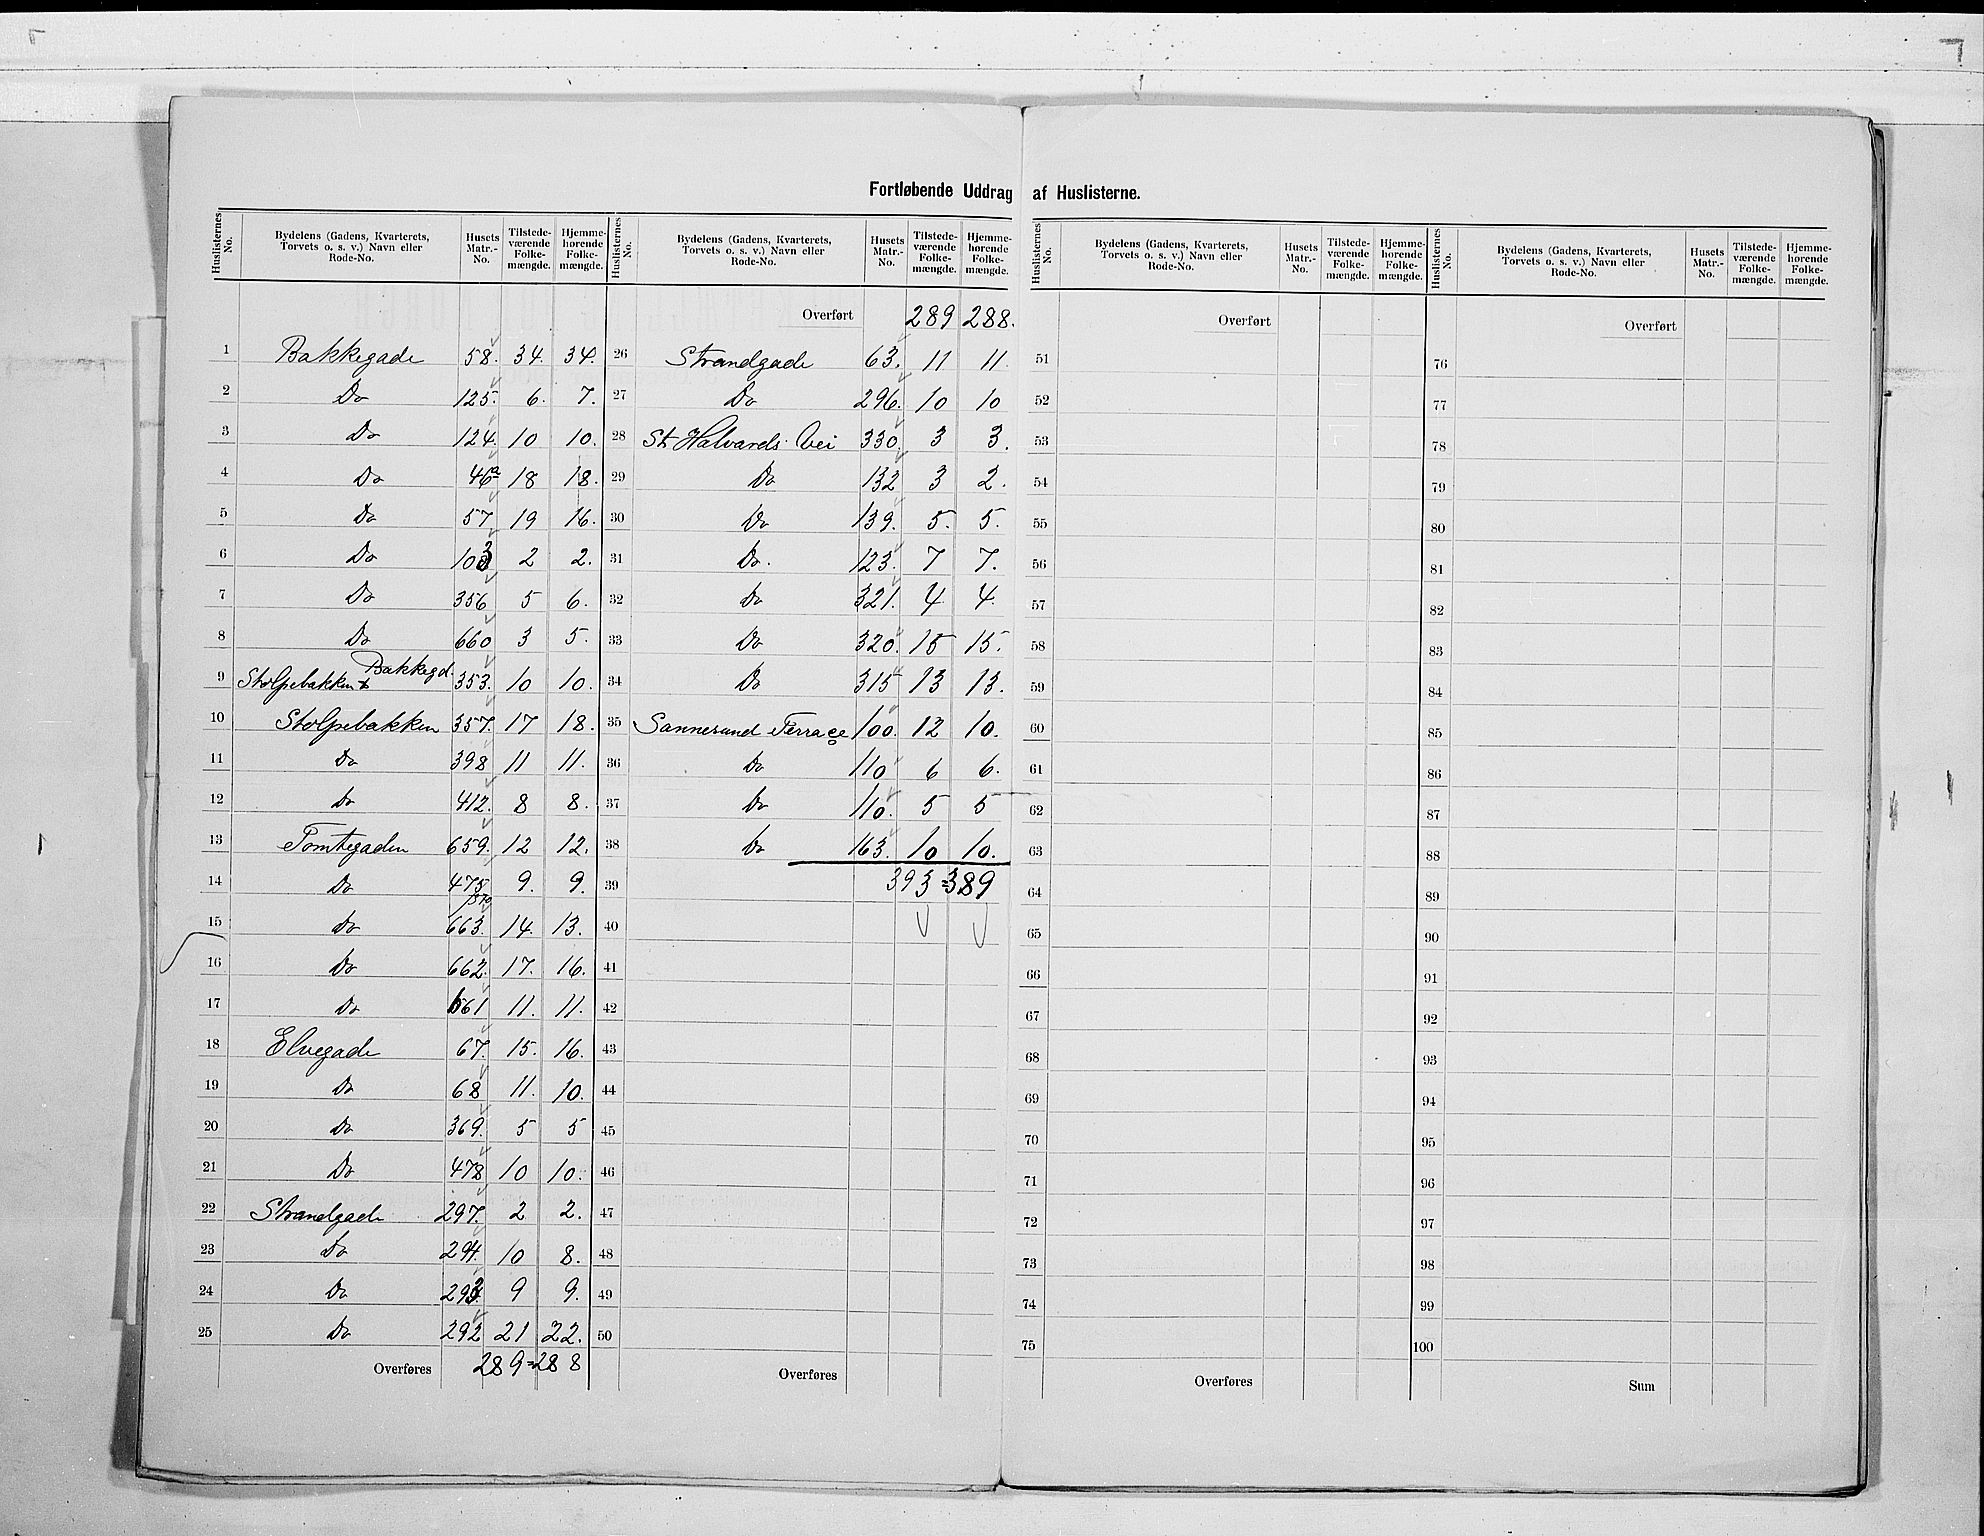 Fortløbende Uddrag af Huslisterne.
Huslisternes No. | Bydelens (Gadens, Kvarterets, Torvets o. s. v.) Navn eller Rode-No. | Husets Matr.-No. | Tilstedeværende Folkemængde. | Hjemmehørende Folkemængde.
1 Bakkegade 58. 34. 34.
2 Do 125. 6. 7.
3 Do 124. 10 10.
4 Do 46a 18 18.
5 Do 57 19 16.
6 Do 103 2 2.
7 Do 356 5 6.
8 Do 660 3 5.
9 Stolpebakken & Bakkegd. 353. 10 10.
10 Stolpebakken 357. 17 18.
11 Do 398 11 11.
12 Do 412. 8 8.
13 Tomtegaden 659. 12 12.
14 Do 475/870 9. 9.
15 Do 663. 14. 13.
16 Do 662. 17. 16.
17 Do 661 11. 11.
18 Elvegade 67. 15. 16.
19 Do 68 11. 10.
20 Do 369. 5 5
21 Do 478 10 10.
22 Strandgade 297. 2 2.
23 Do 294. 10 8.
24 Do 293. 9 9.
25 Do 292 21 22.
Overføres 289=288
Huslisternes No. | Bydelens (Gadens, Kvarterets, Torvets o. s. v.) Navn eller Rode-No. | Husets Matr.-No. | Tilstedeværende Folkemængde. | Hjemmehørende Folkemængde.
Overført 289 288.
26 Strandgade 63. 11 11.
27 Do 296. 10 10
28 St. Halvards Vei 330. 3 3.
29 Do 132 3 2.
30 Do 139. 5. 5.
31 Do. 123. 7 7.
32 Do 321. 4 4.
33 Do 320. 15 15.
34 Do 315 13 13.
35 Sannesund Terrace 100. 12 10.
36 Do 110 6 6.
37 Do 110. 5 5
38 Do 163. 10 10.
39 393=389
40
41
42
43
44
45
46
47
48
49
50
Overføres
Huslisternes No. | Bydelens (Gadens, Kvarterets, Torvets o. s. v.) Navn eller Rode-No. | Husets Matr.-No. | Tilstedeværende Folkemængde. | Hjemmehørende Folkemængde.
Overført
51
52
53
54
55
56
57
58
59
60
61
62
63
64
65
66
67
68
69
70
71
72
73
74
75
Overføres
Huslisternes No. | Bydelens (Gadens, Kvarterets, Torvets o. s. v.) Navn eller Rode-No. | Husets Matr.-No. | Tilstedeværende Folkemængde. | Hjemmehørende Folkemængde.
Overført
76
77
78
79
80
81
82
83
84
85
86
87
88
89
90
91
92
93
94
95
96
97
98
99
100
Sum